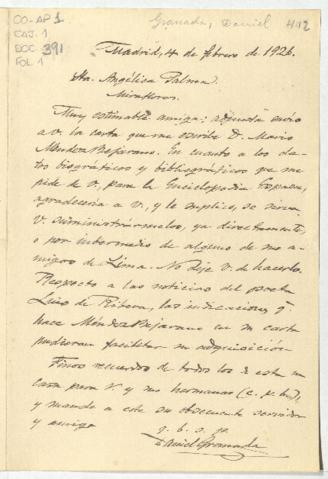 CO-AP1
CAJ. 1
DOC 391
FOL. 1
Granada, Daniel 412
Madrid, 4 de febrero de 1926.
Sta. Angélica Palma
Miraflores.
Muy estimable amiga: adjunta envío
a v. la carta que me escribe D. Mario
Méndez Bejarano. En cuanto a los da-
tos biográficos y bibliográficos que me
pide de v. para la Enciclopedia Espasa,
agradecería a v., y le suplico, se sirva
v. suministrármelos, ya directamente,
o por intermedio de alguno de
amigos de Lima. No deje v. de hacerlo.
Respecto a las noticias del poeta
Luis de Ribera, las indicaciones q.
hace Méndez Bejarano en su carta
pudieran facilitar su adquisición.
Finos recuerdos de todos los de esta su
casa para v. y sus hermanas (c. p. b.),
y mande a este su obsecuente servidor
y amigo
q. b. s. p.
Daniel Granada